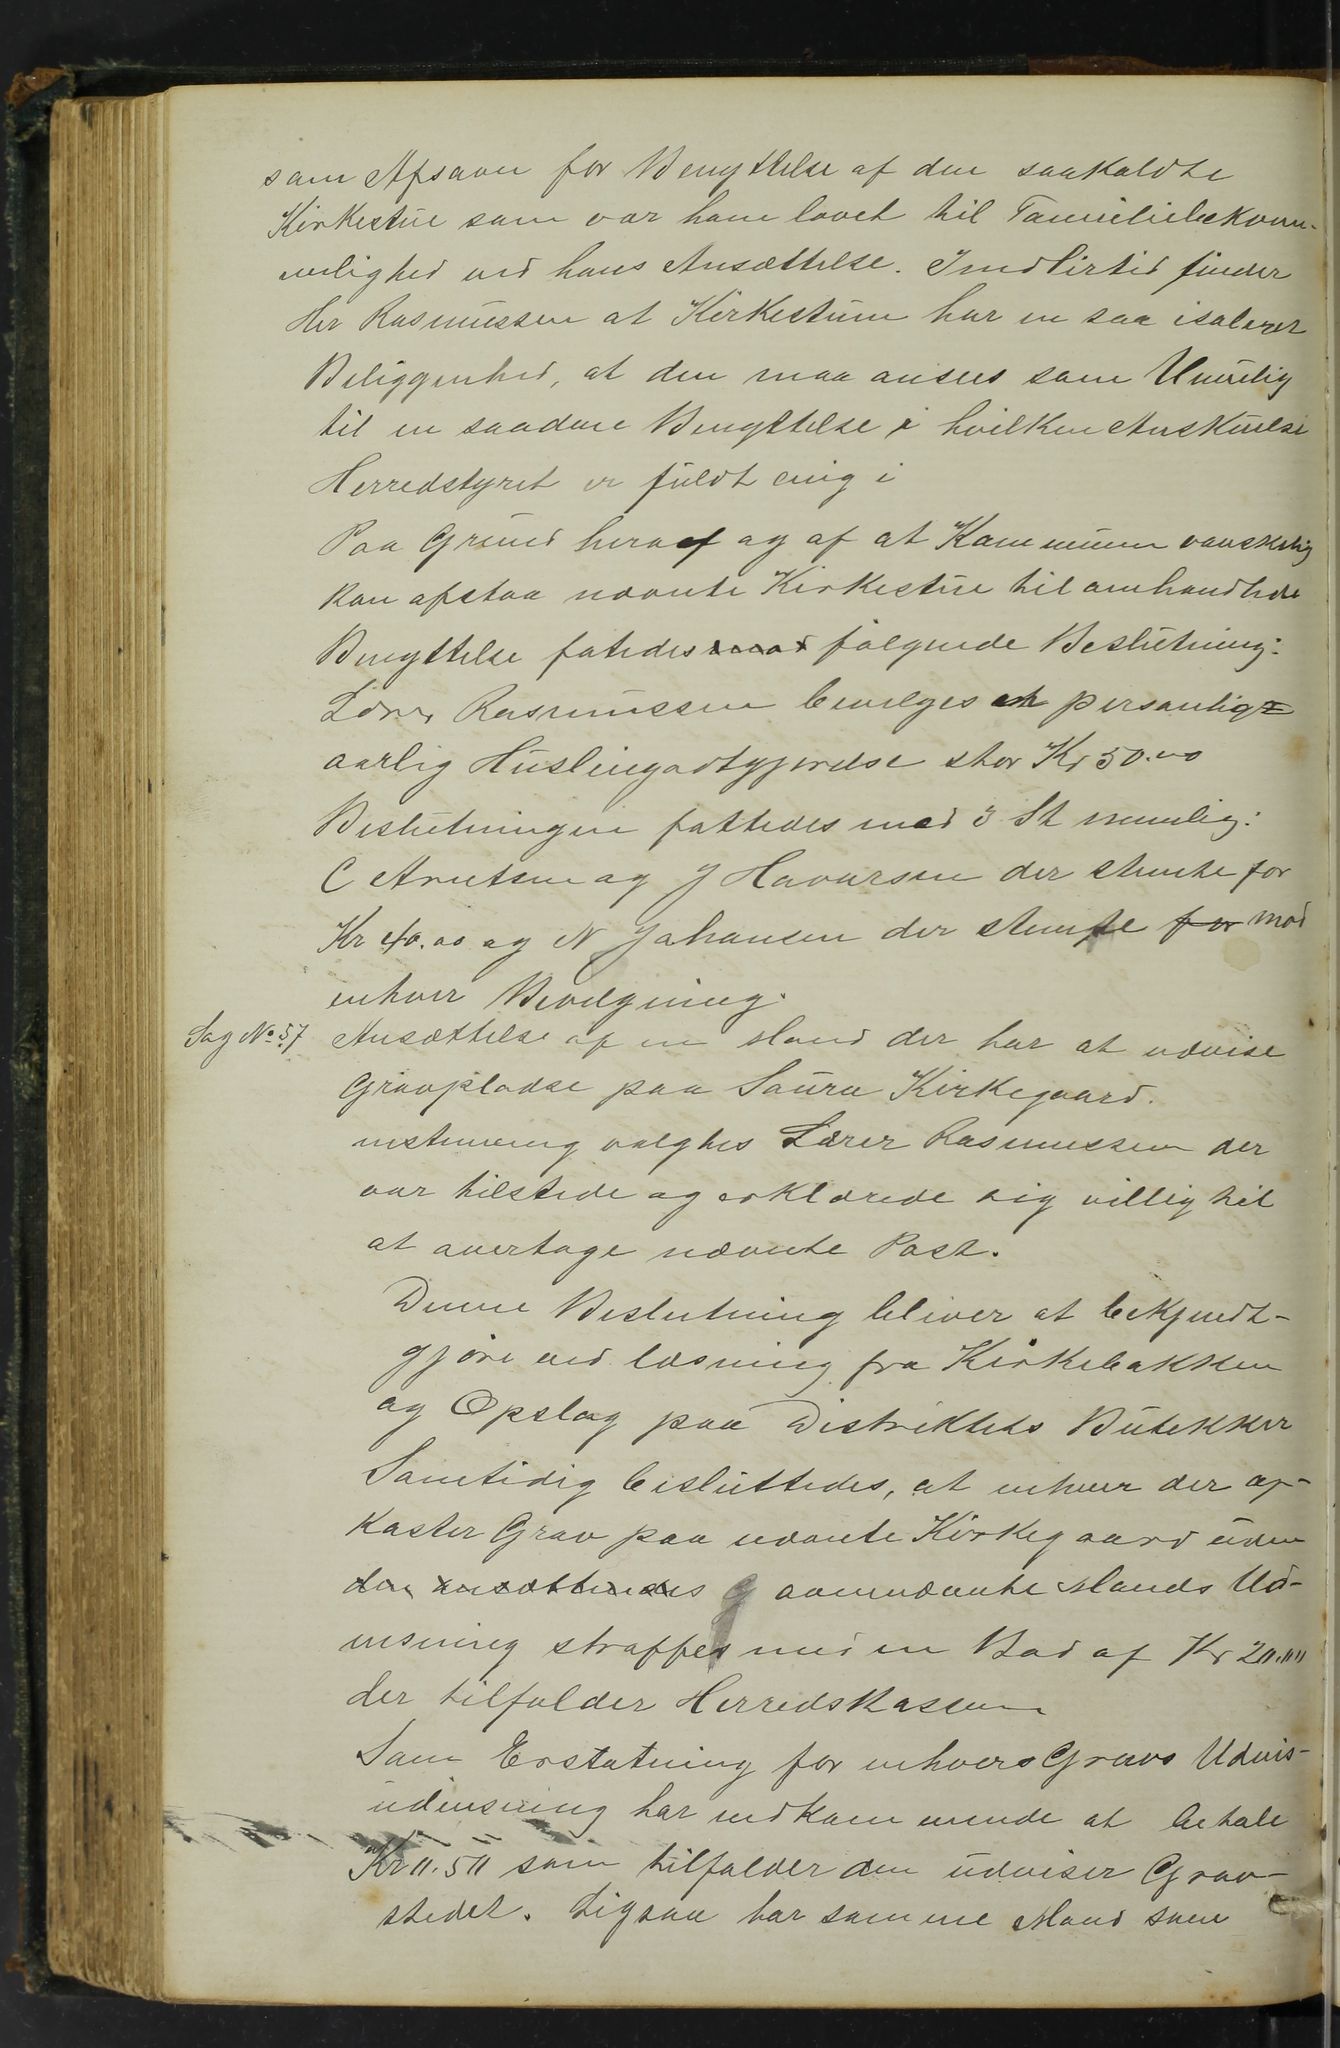 som Afsavn for Benyttelse af den saakaldte
Kirkestue som var ham lovet til Familiebekvem-
melighed ved hans Ansættelse. Imidlertid finder
Hr Rasmussen at Kirkestuen har en saa isoleret
Beliggenhed, at den maa ansees som Umulig
til en saadan Benyttelse i hvilken Anskuelse
Herredstyret er fuldt enig i
Paa Grund heraf og af at Kommunen vanskelig
kan afstaa nævnte Kirkestue til omhandlede
Benyttelse fatedes mod følgende Beslutning:
Lærer Rasmussen bevilges en personlig
aarlig Husleiegodtgjørelse stor Kr 50.00
Beslutningen fattedes med 3 St nemlig:
C Arntsen og J Havursen der stemte for
Kr 40.00 og N Johansen der stemte for mod
enhver Bevilgning.
Sag No 57 Ansættelse af en Mand der har at udvise
Gravpladse paa Saura Kirkegaard.
enstemmig valgtes Lærer Rasmussen der
var tilstede og erklærede sig villig til
at overtage nævnte Post.
Denne Beslutning bliver at bekjendt-
gjøre ved læsning fra Kirkebakken
og Opslag paa Distriktets Butekker
Samtidig besluttedes, at enhver der op-
kaster Grav paa nævnte Kirkegaard uden
den ansættendes ovennævnte Mands Ud-
visning straffes med en Bod af Kr 20.00
der tilfalder Herredskassen
Som Erstatning for enhvers Gravs Udvis-
udvisning har vedkommende at betale
Kr 0.50 som tilfalder den udviser Grav-
stedet. Ligsaa har samme Mand som